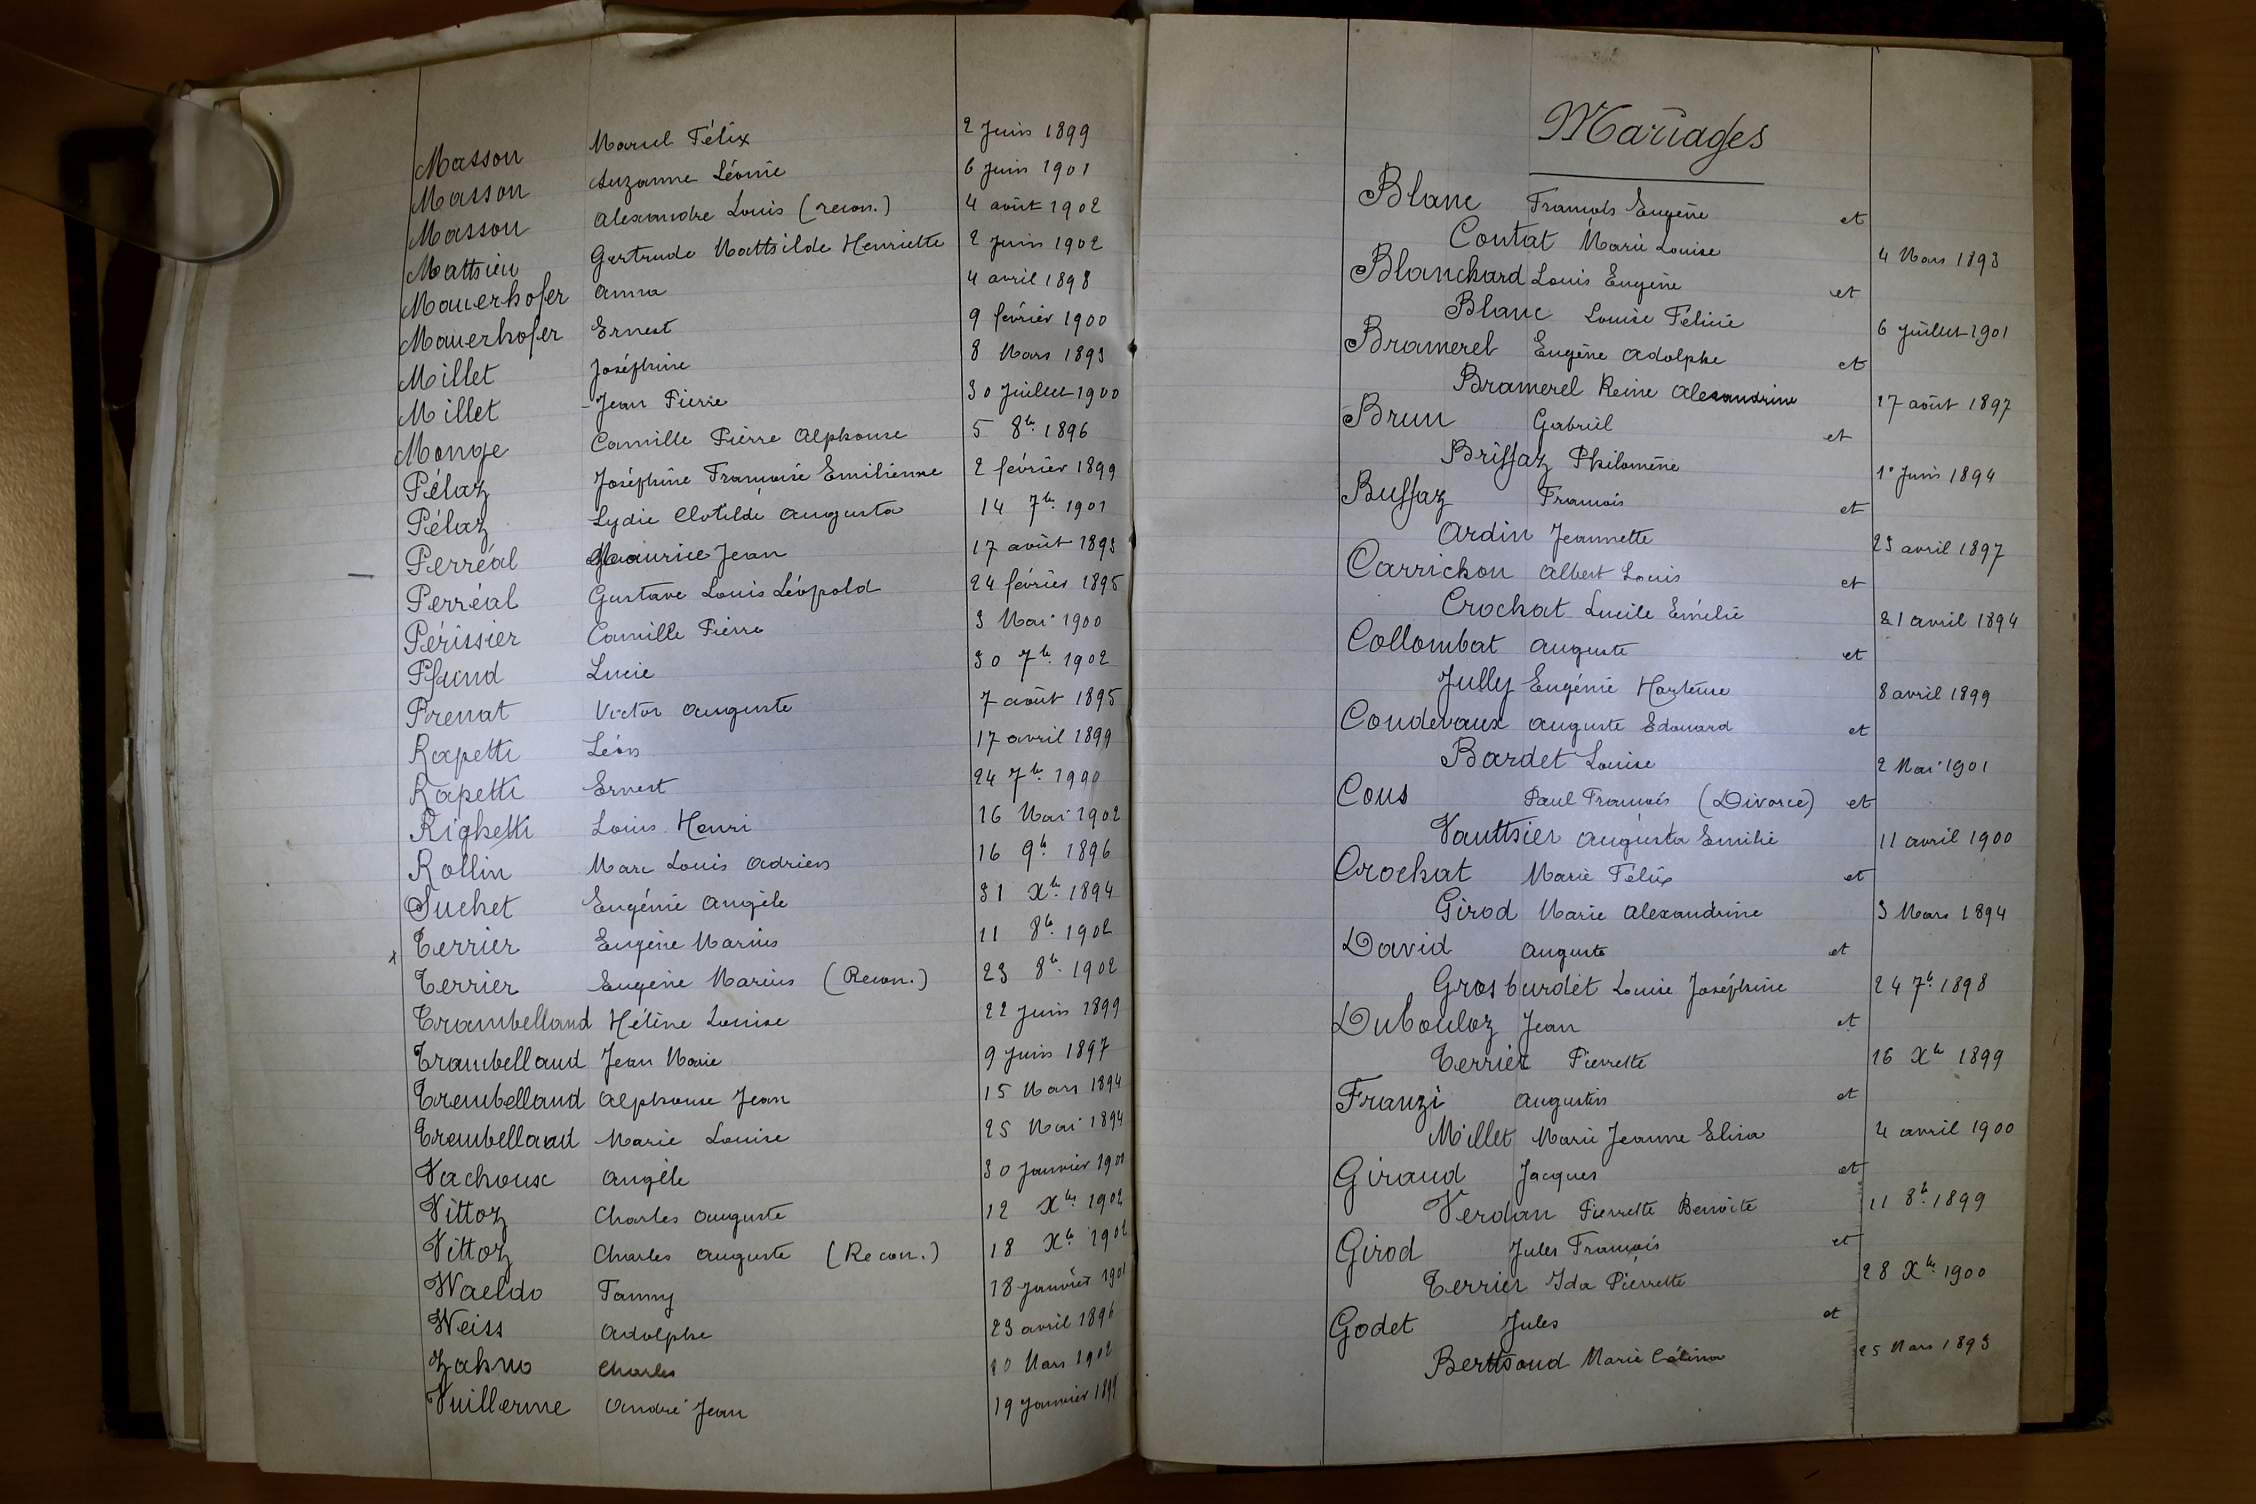 Masson Marcel Félix 2 Juin 1899
Masson Suzanne Léonie 6 Juin 1901
Masson Alexandre Louis (recon.) 4 août 1902
Mathieu Gertrude Mathilde Henriette 2 Juin 1902
Mauerhofer Anna 4 avril 1898
Mauerhofer Ernest 9 février 1900
Millet Joséphine 8 Mars 1893
Millet Jean Pierre 30 Juillet 1900
Monge Camille Pierre Alphonse 5 8bre 1896
Pélaz Joséphine Françoise Emilienne 2 février 1899
Pélaz Lydie Clotilde Augusta 14 7bre 1901
Perréal Maurice Jean 17 août 1893
Perréal Gustave Louis Léopold 24 février 1895
Périssier Camille Pierre 3 Mai 1900
Pfund Lucie 30 7bre 1902
Prenat Victor Auguste 7 août 1895
Rapetti Léon 17 avril 1899
Rapetti Ernest 24 7bre
Righetti Louis Henri 16 Mai 1902
Rollin Marc Louis Adrien 16 9bre 1896
Suchet Eugénie Angèle 31 Xbre 1894
x Terrier Eugène Marius 11 8bre 1902
Terrier Eugène Marius (Recon.) 23 8bre 1902
Trambelland Hélène Louise 22 Juin 1899
Trambelland Jean Marie 9 Juin 1897
Trembelland Alphonse Jean 15 Mars 1894
Trembelland Marie Louise 25 Mai 1894
Vachoux Angèle 30 Janvier
Vittoz Charles Auguste 12 Xbre 1902
Vittoz Charles Auguste (Recon.) 18 Xbre 1902
Waeldo Fanny 18 Janvier 1901
Weiss Adolphe 23 avril 1896
Zahno Charles 20 Mars 1902
Vuillerme André Jean 19 Janvier
Mariages
Blanc François Eugène et
Contat Marie Louise 4 Mars 1893
Blanchard Louis Eugène et
Blanc Louise Félicie 6 Juillet 1901
Bramerel Eugène Adolphe et
Bramerel Reine Alexandrine 17 août 1897
Brun Gabriel et
Briffaz Philomène 1er Juin 1894
Buffaz François et
Ardin Jeannette 23 avril 1897
Carrichon Albert Louis et
Crochat Lucile Emélie 21 avril 1894
Collombat Auguste et
Jully Eugénie Hortense 8 avril 1899
Coudevaux Auguste Edouard et
Bardet Louise 2 Mai 1901
Cous Paul François (Divorce) et
Vauthier Augusta Emilie 11 avril 1900
Crochat Marie Félix et
Girod Marie Alexandrine 3 Mars 1894
David Auguste et
Grosburdet Louise Joséphine 24 7bre 1898
Dubouloz Jean et
Terrier Pierrette 16 Xbre 1899
Franzi Augustin et
Millet Marie Jeanne Elisa 4 avril 1900
Giraud Jacques et
Verdan Pierrette Benoite 11 8bre 1899
Girod Jules François et
Terrier Ida Pierrette 28 Xbre 1900
Godet Jules et
Berthoud Marie Célina 25 Mars 1893